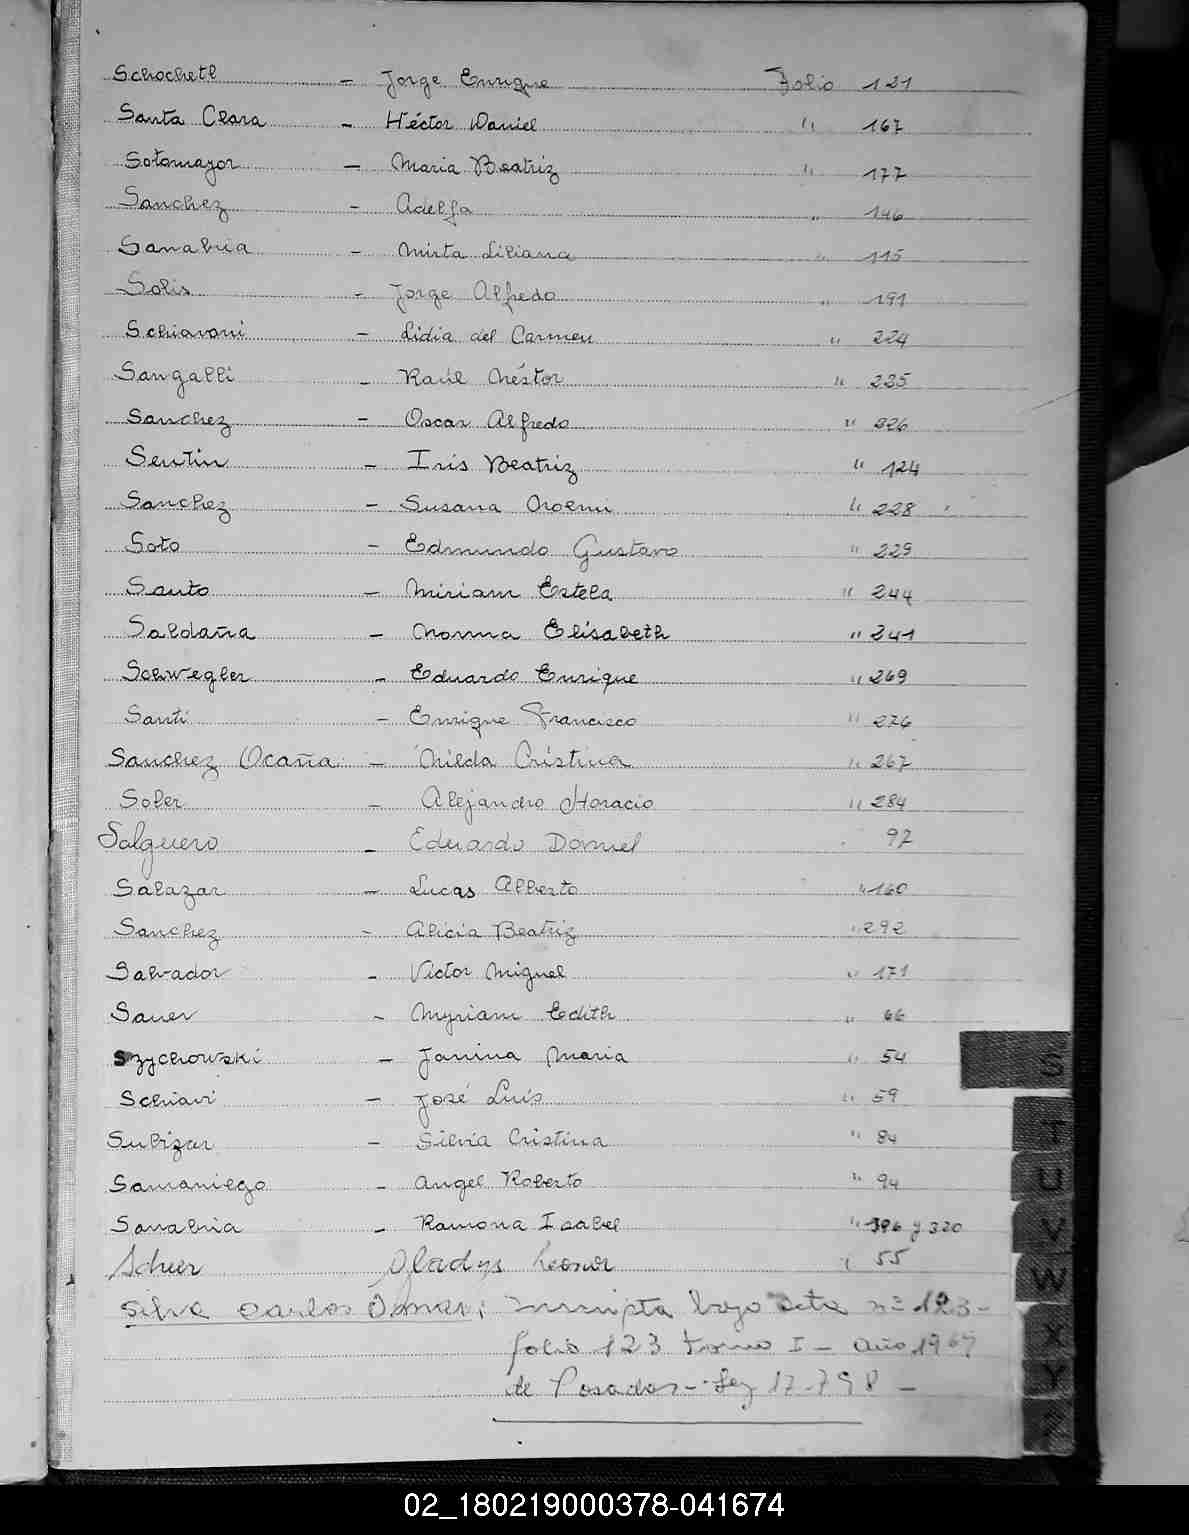 Schochetl - Jorge Enrique Folio 121
Santa Clara - Héctor Daniel " 167
Sotomayor - Maria Beatriz " 177
Sanchez - Adelfa " 146
Sanabria - Mirta Liliana " 115
Solis - Jorge Alfredo " 191
Schiavoni - Lidia del Carmen " 224
Sangalli - Raúl Néstor " 225
Sanchez - Oscar Alfredo " 226
Sentin - Iris Beatriz " 124
Sanchez - Susana Noemi " 228
Soto - Edmundo Gustavo " 229
Santo - Miriam Estela " 244
Saldaña - Norma Elisabeth " 241
Schwegler - Eduardo Enrique " 269
Santi - Enrique Francisco " 276
Sanchez Ocaña - Nilda Cristina " 267
Soler - Alejandro Horacio " 284
Salguero - Eduardo Daniel 97
Salazar - Lucas Alberto " 160
Sanchez - Alicia Beatriz " 292
Salvador - Victor Miguel " 171
Sauer - Myriam Edith " 66
Szychowski - Janina Maria " 54
Schiavi - José Luis " 59
Subizar - Silvia Cristina " 84
Samaniego - Angel Roberto " 94
Sanabria - Ramona Isabel " 396 y 320
Scheer Gladys Leonor " 55
Silva Carlos Osmar: Inscripta bajo acta nº 123-
folio 123 tomo I - Año 1969
de Posadas - Ley 17.798 -
S
T
U
V
W
X
Y
Z
02_180219000378-041674